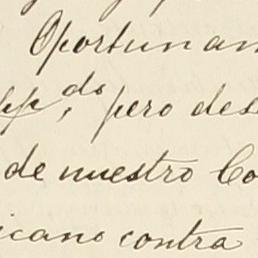 Oportunam
pero des
de nuestro Co
icano contra